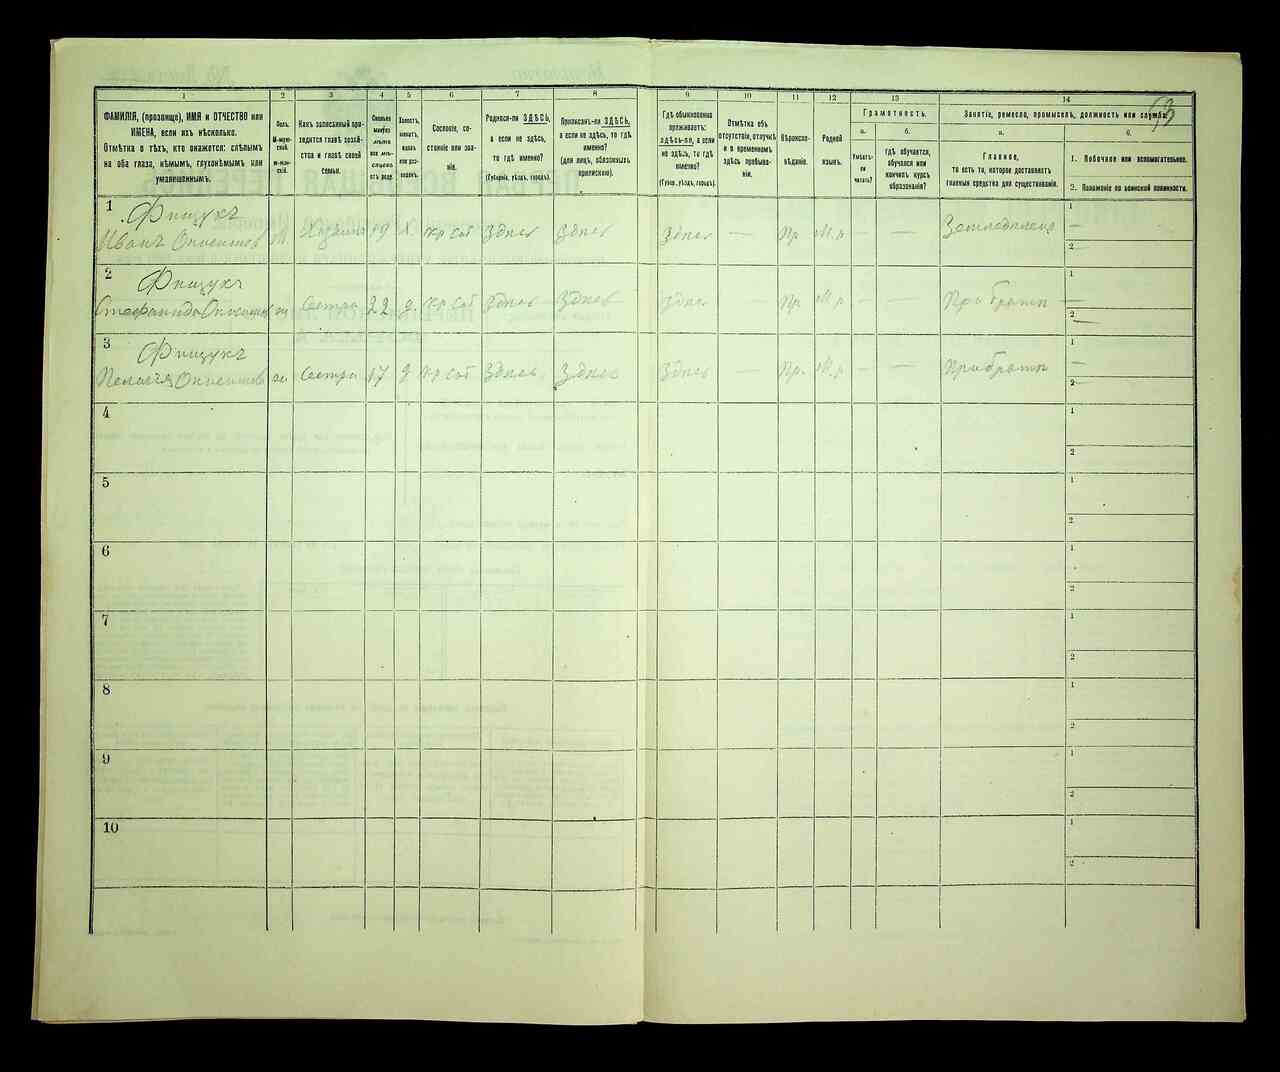 53
1
2
3
4
5
6
7
8
9
10
11
12
13
14
ФАМИЛІЯ, (прозвище), ИМЯ и ОТЧЕСТВО или
ИМЕНА, если ихъ нѣсколько.
Отмѣтка о тѣхъ, кто окажется: слѣпымъ
на оба глаза, нѣмымъ, глухонѣмымъ или
умалишеннымъ.
Полъ.
М-муж-
ской.
Ж-жен-
скій.
Какъ записанный при-
ходится главѣ хозяй-
ства и главѣ своей
семьи.
Сколько
минуло
лѣтъ
или мѣ-
сяцевъ
отъ роду.
Холостъ,
женатъ,
вдовъ
или раз-
веденъ.
Сословіе, со-
стояніе или зва-
ніе.
Родился-ли ЗДѢСЬ,
а если не здѣсь,
то гдѣ именно?
(Губернія, уѣздъ, городъ).
Приписанъ-ли ЗДѢСЬ,
а если не здѣсь, то гдѣ
именно?
(для лицъ, обязанныхъ
припискою).
Гдѣ обыкновенно
проживаетъ:
здѣсь-ли, а если
не здѣсь, то гдѣ
именно?
(Губер., уѣздъ, городъ).
Отмѣтка объ
отсутствіи, отлучкѣ
и о временномъ
здѣсь пребыва-
ніи.
Вѣроиспо-
вѣданіе.
Родной
языкъ.
Грамотность.
а.
Умѣетъ-
ли
читать?
б.
гдѣ обучается,
обучался или
кончилъ курсъ
образованія?
Занятіе, ремесло, промыселъ, должность или служба.
а.
Главное,
то есть то, которое доставляетъ
главныя средства для существованія.
б.
1. Побочное или вспомогательное.
2. Положеніе по воинской повинности.
1
Иванъ М. Хозяинъ 19 Х Здѣсь Здѣсь Здѣсь — Пр М.р — — 1 —
2
2
Ж Сестра 22 Д Здѣсь Здѣсь Здѣсь — Пр М.р — — При братѣ 1 —
2 —
3
Ж Сестра 17 Д Здѣсь Здѣсь Здѣсь — Пр. М.р — — При братѣ 1 —
2 —
4 1
2
5 1
2
6 1
2
7 1
2
8 1
2
9 1
2
10 1
2